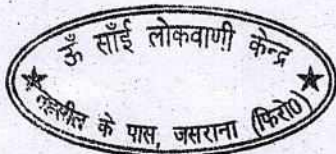 ऊँ साँई लोकवाणी केन्द्र
तहसील के पास, जसराना (फिरो0)